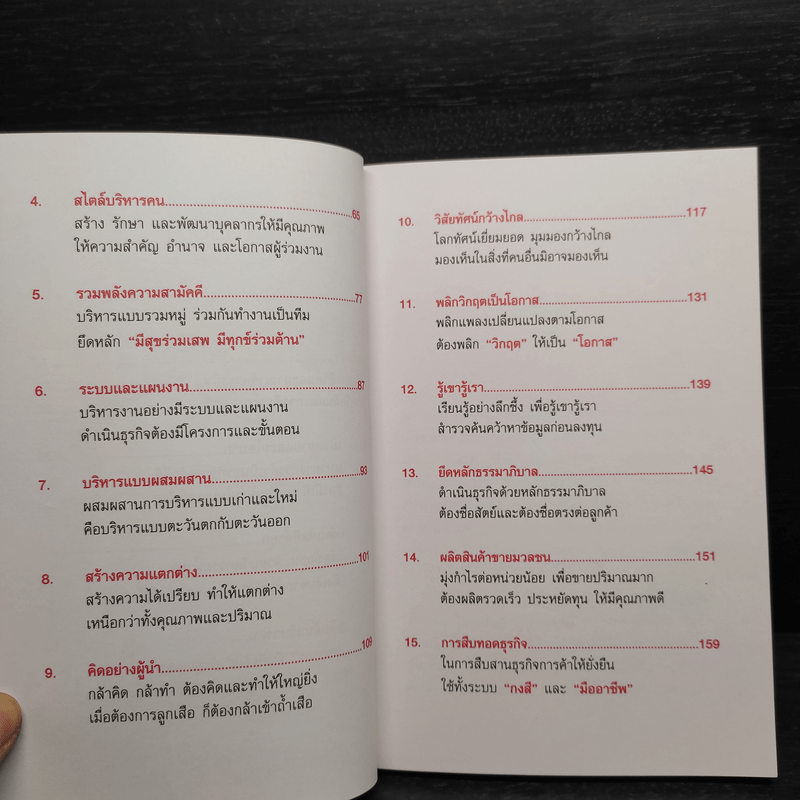 4. สไตล์บริหารคน 65
สร้าง รักษา และพัฒนาบุคลากรให้มีคุณภาพ
ให้ความสำคัญ อำนาจ และโอกาสผู้ร่วมงาน
5. รวมพลังความสามัคคี 77
บริหารแบบรวมหมู่ ร่วมกันทำงานเป็นทีม
ยึดหลัก “มีสุขร่วมเสพ มีทุกข์ร่วมต้าน”
6. ระบบและแผนงาน 87
บริหารงานอย่างมีระบบและแผนงาน
ดำเนินธุรกิจต้องมีโครงการและขั้นตอน
7. บริหารแบบผสมผสาน 93
ผสมผสานการบริหารแบบเก่าและใหม่
คือบริหารแบบตะวันตกกับตะวันออก
8. สร้างความแตกต่าง 101
สร้างความได้เปรียบ ทำให้แตกต่าง
เหนือกว่าทั้งคุณภาพและปริมาณ
9. คิดอย่างผู้นำ 109
กล้าคิด กล้าทำ ต้องคิดและทำให้ใหญ่ยิ่ง
เมื่อต้องการลูกเสือ ก็ต้องกล้าเข้าถ้ำเสือ
10. วิสัยทัศน์กว้างไกล 117
โลกทัศน์เยี่ยมยอด มุมมองกว้างไกล
มองเห็นในสิ่งที่คนอื่นมิอาจมองเห็น
11. พลิกวิกฤตเป็นโอกาส 131
พลิกแพลงเปลี่ยนแปลงตามโอกาส
ต้องพลิก “วิกฤต” ให้เป็น “โอกาส”
12. รู้เขารู้เรา 139
เรียนรู้อย่างลึกซึ้ง เพื่อรู้เขารู้เรา
สำรวจค้นคว้าหาข้อมูลก่อนลงทุน
13. ยึดหลักธรรมาภิบาล 145
ดำเนินธุรกิจด้วยหลักธรรมาภิบาล
ต้องซื่อสัตย์และต้องซื่อตรงต่อลูกค้า
14. ผลิตสินค้าขายมวลชน 151
มุ่งกำไรต่อหน่วยน้อย เพื่อขายปริมาณมาก
ต้องผลิตรวดเร็ว ประหยัดทุน ให้มีคุณภาพดี
15. การสืบทอดธุรกิจ 159
ในการสืบสานธุรกิจการค้าให้ยั่งยืน
ใช้ทั้งระบบ “กงสี” และ “มืออาชีพ”